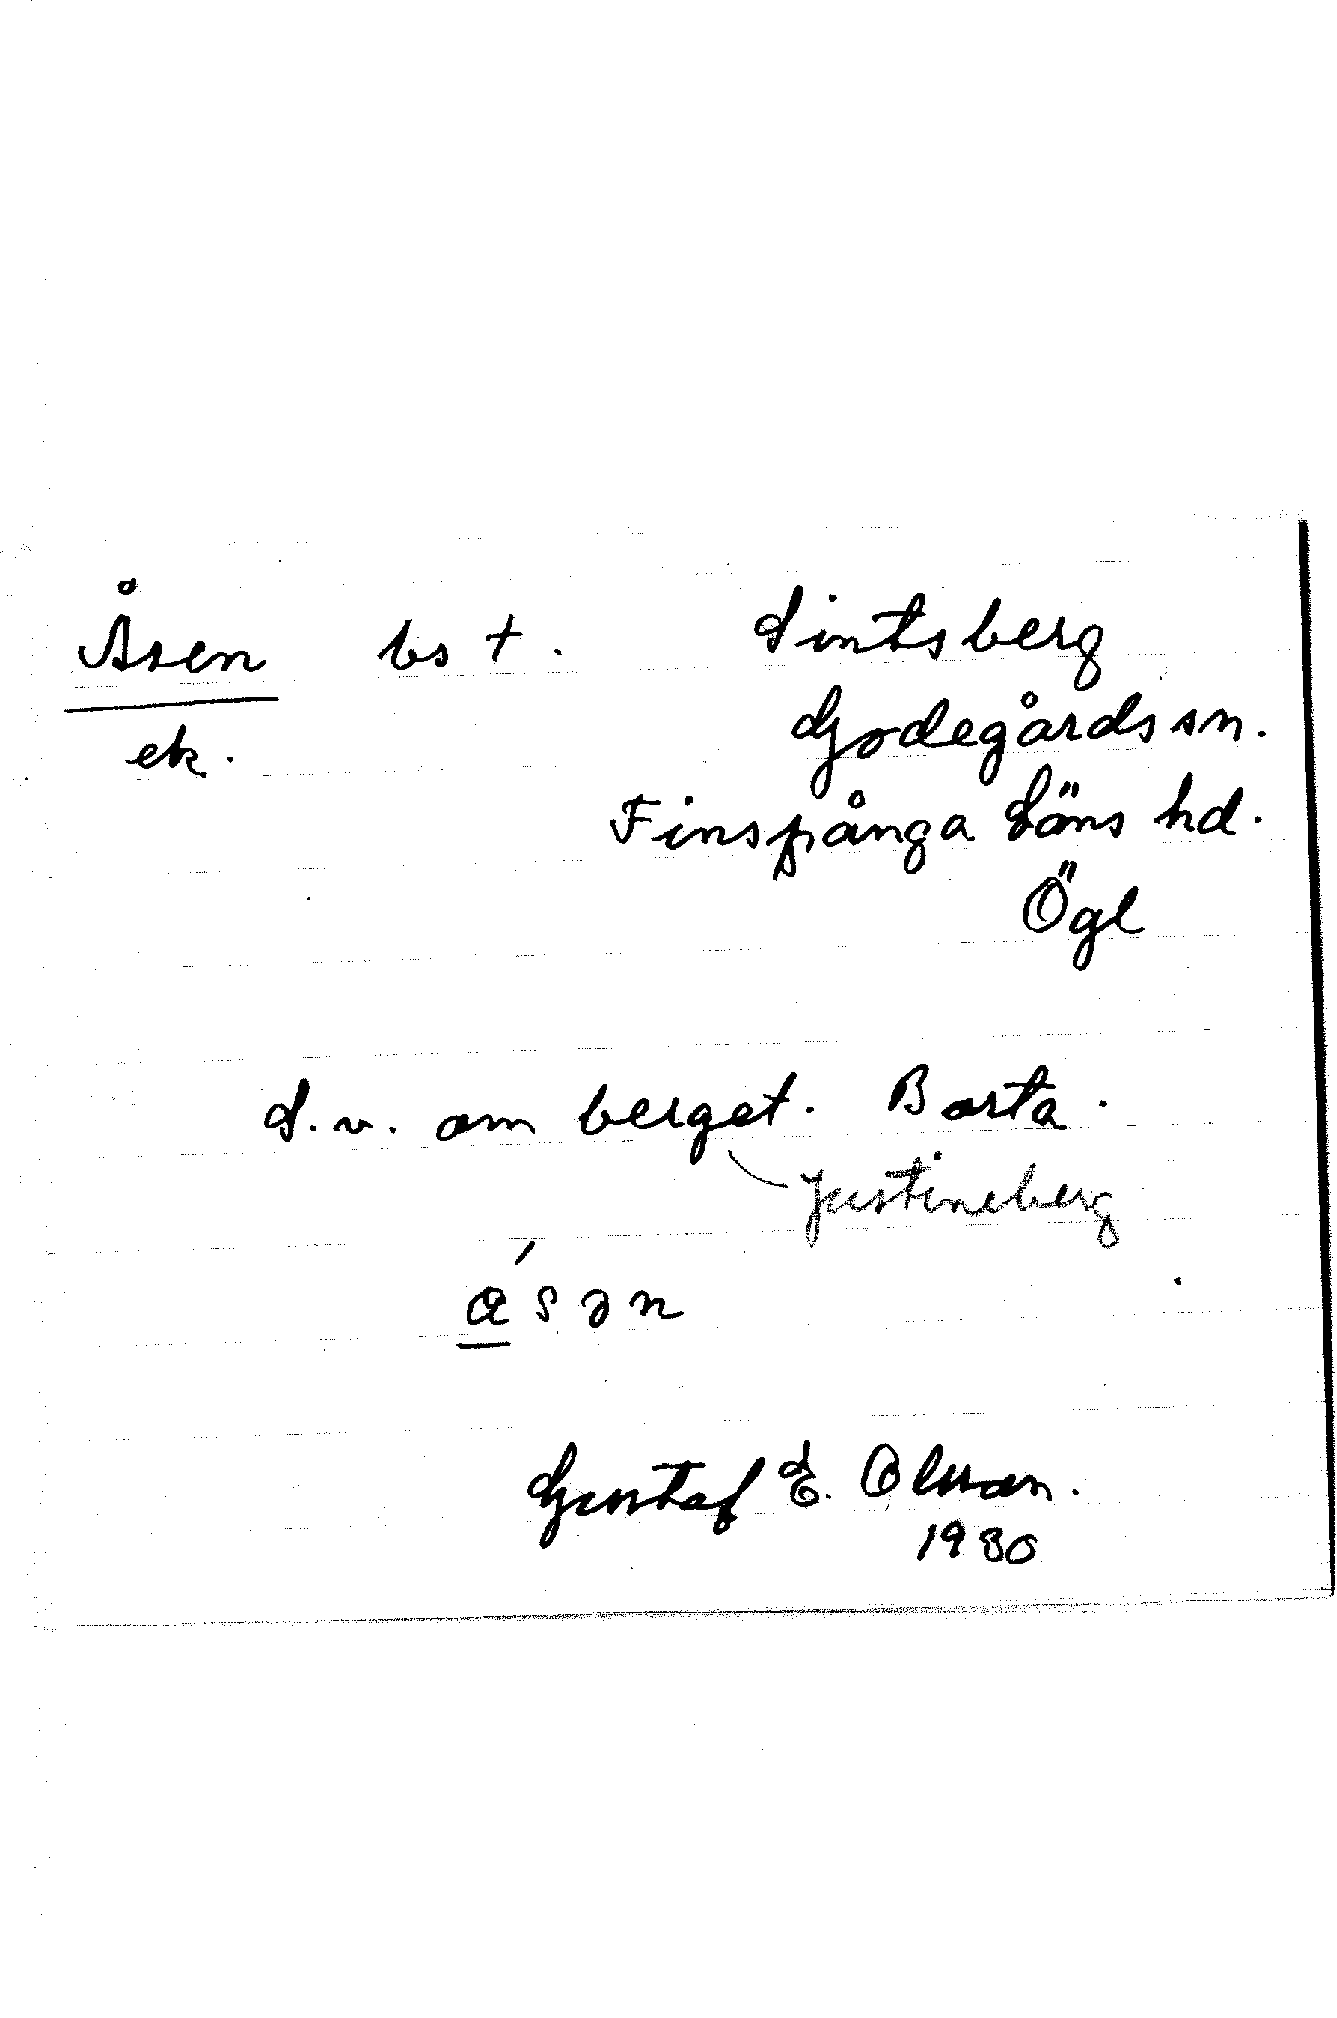 Åsen bs †. Sintsberg
ek. Godegårds sn.
Finspånga Läns hd.
Ögl
S.v. om berget. Borta.
Justineberg
ɑ́sən
Gustaf E. Olsson.
1980